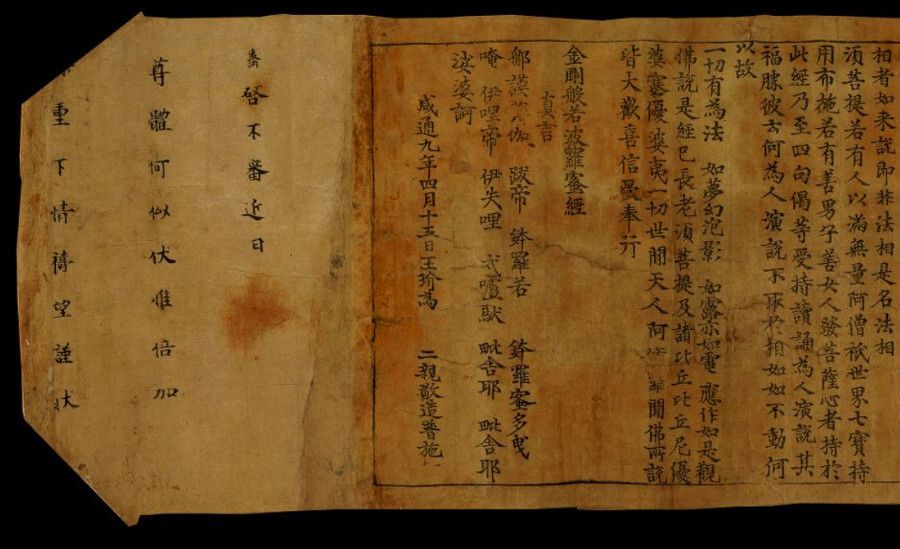 相者如来說即非法相是名法相
須菩提若有人以滿無量阿僧祇世界七寶持
用布施若有善男子善女人發菩薩心者持於
此經乃至四句偈等受持讀誦為人演說其
福勝彼云何為人演說不取於相如如不動何
以故
一切有為法 如夢幻泡影 如露亦如電 應作如是觀
佛說是經已長老須菩提及諸比丘比丘尼優
婆塞優婆夷一切世間天人阿 羅聞佛所說
皆大歡喜信受奉行
金剛般若波羅蜜經
真言
那謨 伽 跋帝 鉢羅若 鉢羅蜜多曳
唵 伊哩帝 伊失哩 戍嚧馱 毗舍耶 毗舍耶
娑婆訶
咸通九年四月十五日王玠為 二親敬造普施
啓不審近日
尊體何似伏惟倍加
重下情禱望謹狀